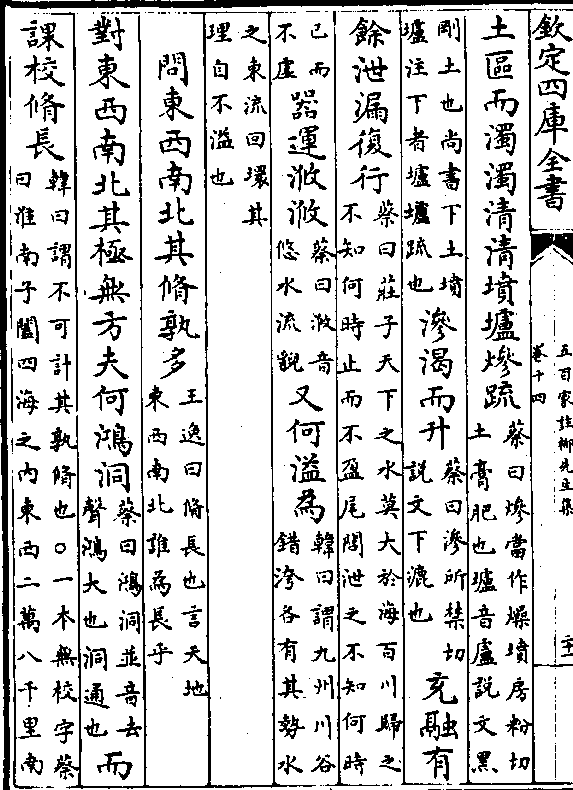 欽定四庫全書
五百家註柳先生集
卷十四
二十一
土區而濁濁清清墳壚熮疏
蔡曰熮當作燥墳房粉切
土膏肥也壚音盧說文黑
剛土也尚書下土墳
壚注下者壚壚疏也
滲渴而升
蔡曰滲所禁切
說文下漉也
充融有
餘泄漏復行
蔡曰莊子天下之水莫大於海百川歸之
不知何時止而不盈尾閭泄之不知何時
已而
不虛
器運浟浟
蔡曰浟音
悠水流貌
又何溢為
韓曰謂九州川谷
錯洿各有其勢水
之東流回環其
理自不溢也
問東西南北其脩孰多
王逸曰脩長也言天地
東西南北誰為長乎
對東西南北其極無方夫何鴻洞
蔡曰鴻洞並音去
聲鴻大也洞通也
而
課校脩長
韓曰謂不可計其孰脩也○一本無校字蔡
曰淮南子闔四海之內東西二萬八千里南